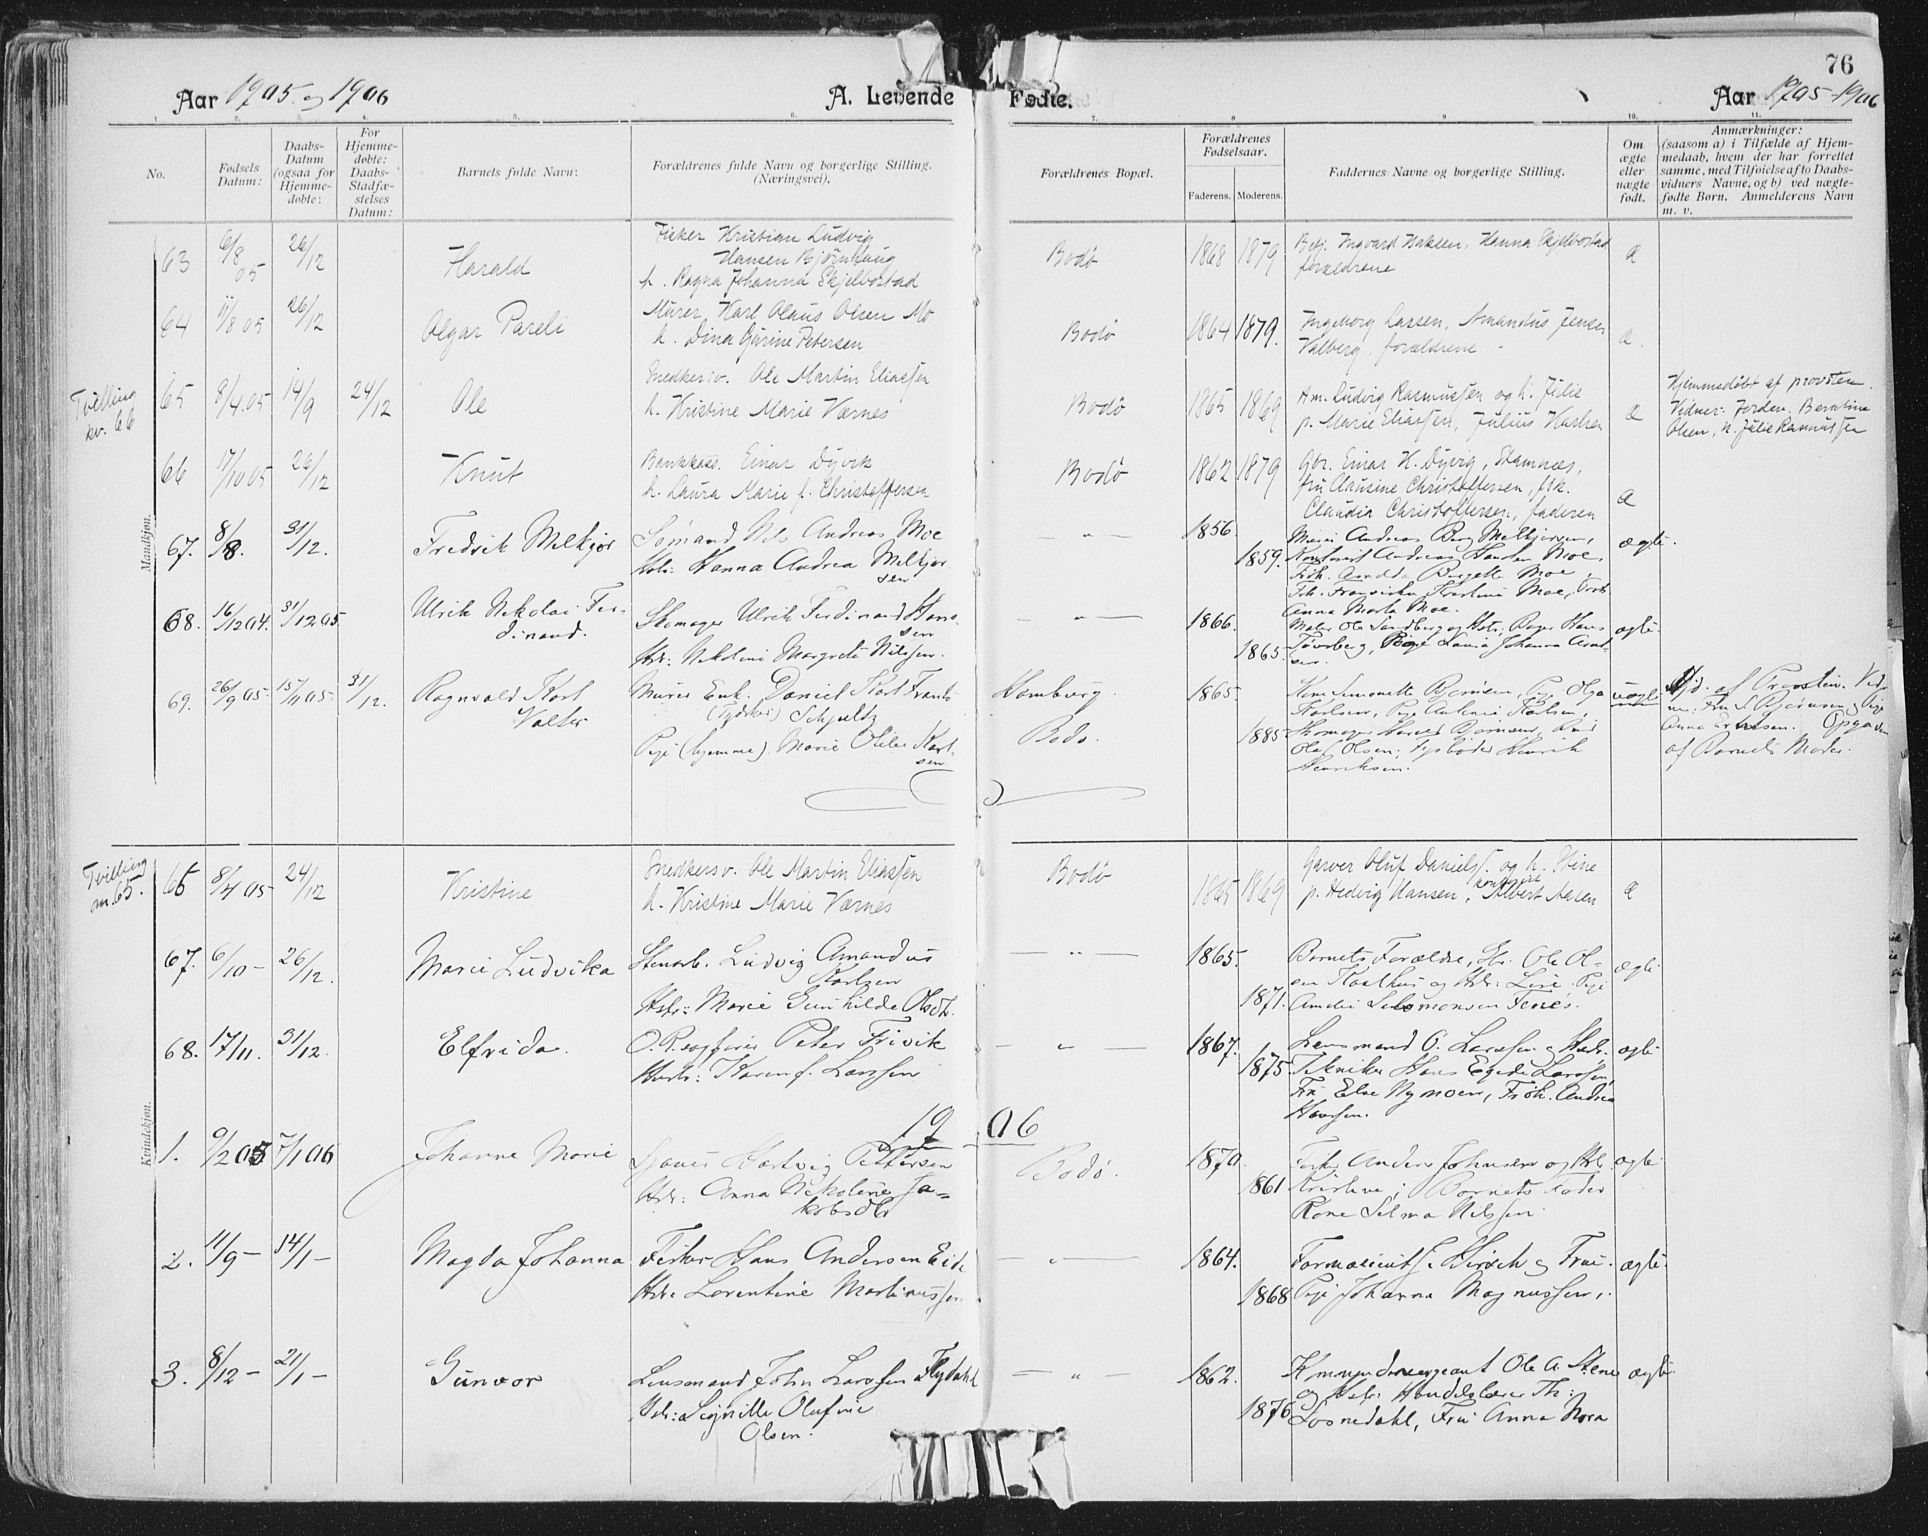 76
Aar 1905 og 1906 A. Levende Fødte. Aar 1905-1906
1. 2. 3. 4. 5. 6. 7. 8. 9. 10. 11.
No.
Fødsels Datum:
Daabs-Datum (ogsaa for Hjemme-døbte:
For Hjemme-døbte: Daabs-Stadfæ-stelses Datum:
Barnets fulde Navn:
Forældrenes fulde Navn og borgerlige Stilling. (Næringsvei).
Forældrenes Bopæl.
Forældrenes Fødselsaar.
Faderens. Moderens.
Faddernes Navne og borgerlige Stilling.
Om ægte eller uægte født.
Anmærkninger:
(saasom a) i Tilfælde af Hjem-
medaab, hvem der har forrettet
samme, med Tilføielse af to Daabs-
vidners Navne, og b) ved uægte-
fødte Børn. Anmelderens Navn
m. v.
Mandkjøn.
63 6/8 05 26/12 Harald
Fisker Kristian Ludvig
Hansen Bjørnhaug
h. Ragna Johanna Skjelbostad
Bodø 1868 1879
Hanna Skjelbostad
forældrene
æ
64 11/8 05 26/12 Olgar Pareli
Murer Karl Olaus Olsen Mo
h. Dina Gurine Petersen
Bodø 1864 1879.
Ingeborg Larsen, Amandus Jensen
Valberg, forældrene
æ.
Tvilling
kv. 66
65 8/4 05 14/9 24/12 Ole
Snedkersv. Ole Martin Eliassen
h. Kristine Marie Værnes
Bodø 1865 1869
Am. Ludvig Rasmussen og h. Julie
p. Marie Eliassen, Julius Karlsen
æ
Hjemmedøbt af provsten.
Vidner: Jordm. Berntine
Olsen, h. Julie Rasmussen
66 17/10 05 26/12 Knut
Bankkass. Einar Dyvik
h. Laura Marie f. Christoffersen
Bodø 1862 1879
Gbr. Einar H. Dyvig, Stamnæs,
fru Clausine Christoffersen, frk.
Claudia Christoffersen, faderen
æ
67. 8/8. 31/12. Fredrik Melkjor
Sømand Nils Andreas Moe
Hstr: Hanna Andrea Melkjor
sen
— " — 1856. 1859.
Andreas Berg Melkjorsen,
Andreas Karsten Moe,
Frøk. Bergette Moe,
Frk. Franciska Kristine Moe,
Anna Marta Moe.
ægte.
68. 16/12 04. 31/12 05. Ulrik Nikolai Fer-
dinand.
Skomager Ulrik Ferdinand Hans
sen
Hstr: Nikoline Margrete Nilssen.
— " — 1866. 1865.
Maler Ole Sandberg og Hstr; Hans
Pige Lovisa Johanna
sen.
ægte.
69. 26/9 05. 15/11 05. 31/12. Ragnvald Karl
Valter
Murer Enk. Daniel Karl Frants
(Tydsker) Schjultz
Pige (hjemme) Marie Oldie Karl-
sen
Hamburg. Bodø. 1865. 1885
Simonette Bjørnsen, Pige Olga
Karlsen, Pige Antonie Karlsen,
Skomager Harald Bjørnsen,
Olaf Olsen; Henrik
Henriksen.
uægte
Hjd. af Provsten. Vid-
ner: Fru S. Bjørnsen og Pige
Anna Opgaven
af Barnets Moder.
Kvindekjøn.
Tvilling
m. 65.
66 8/4 05 24/12 Kristine
Snedkersv. Ole Martin Eliassen
h. Kristine Marie Værnes
Bodø 1865 1869
Garver Oluf Daniels. og h. Stine
p. Hedvig Hansen, Albert Aasen
æ
67. 6/10 - 26/12. Marie Ludvika
Stenarb. Ludvig Amandus
Karlsen
Hstr: Marie Gunhilde Olsdtr.
— " — 1865. 1871.
Barnets Forældre, Ole Ol-
sen og Hstr: Line, Pige
Amalie Salomonsen Fenes.
ægte.
68. 17/11. 31/12. Elfrida.
O.R.sagfører Peter Trivik
Hustr: Karen f. Larssen
— " — 1867. 1875
Lensmand O. Larssen og Hstr.
Tekniker Hans Egede Larssen,
Fru Else Nymoen, Frøk. Andrea
Hansen.
ægte
1906
1. 9/2 05 7/1 06 Johanne Marie
Hartvig Pettersen
Hstr: Anna Nikoline Ja-
kobsdtr
Bodø. 1870. 1861
Fisker Anders Johnsen og Hstr.
Kristine; Barnets Fader
Kone Selma Nilssen.
ægte
2. 11/9 - 14/1 - Magda Johanna
Fisker Hans Andersen Eide
Hstr. Lorentine Martinussen.
— " — 1864. 1868
Farmaceut S. Hirsch og Frue.
Pige Johanna Magnussen,
ægte.
3. 8/12 - 21/1 - Gunvor
Lensmand John Larssen Flydahl
Hstr: Signille Olufine
Olsen.
— " — 1862. 1876
Kommandersergeant Ole A. Stene
og Hstr. Handelslærer Th:
Losnedahl, Fru Anna Nora
ægte